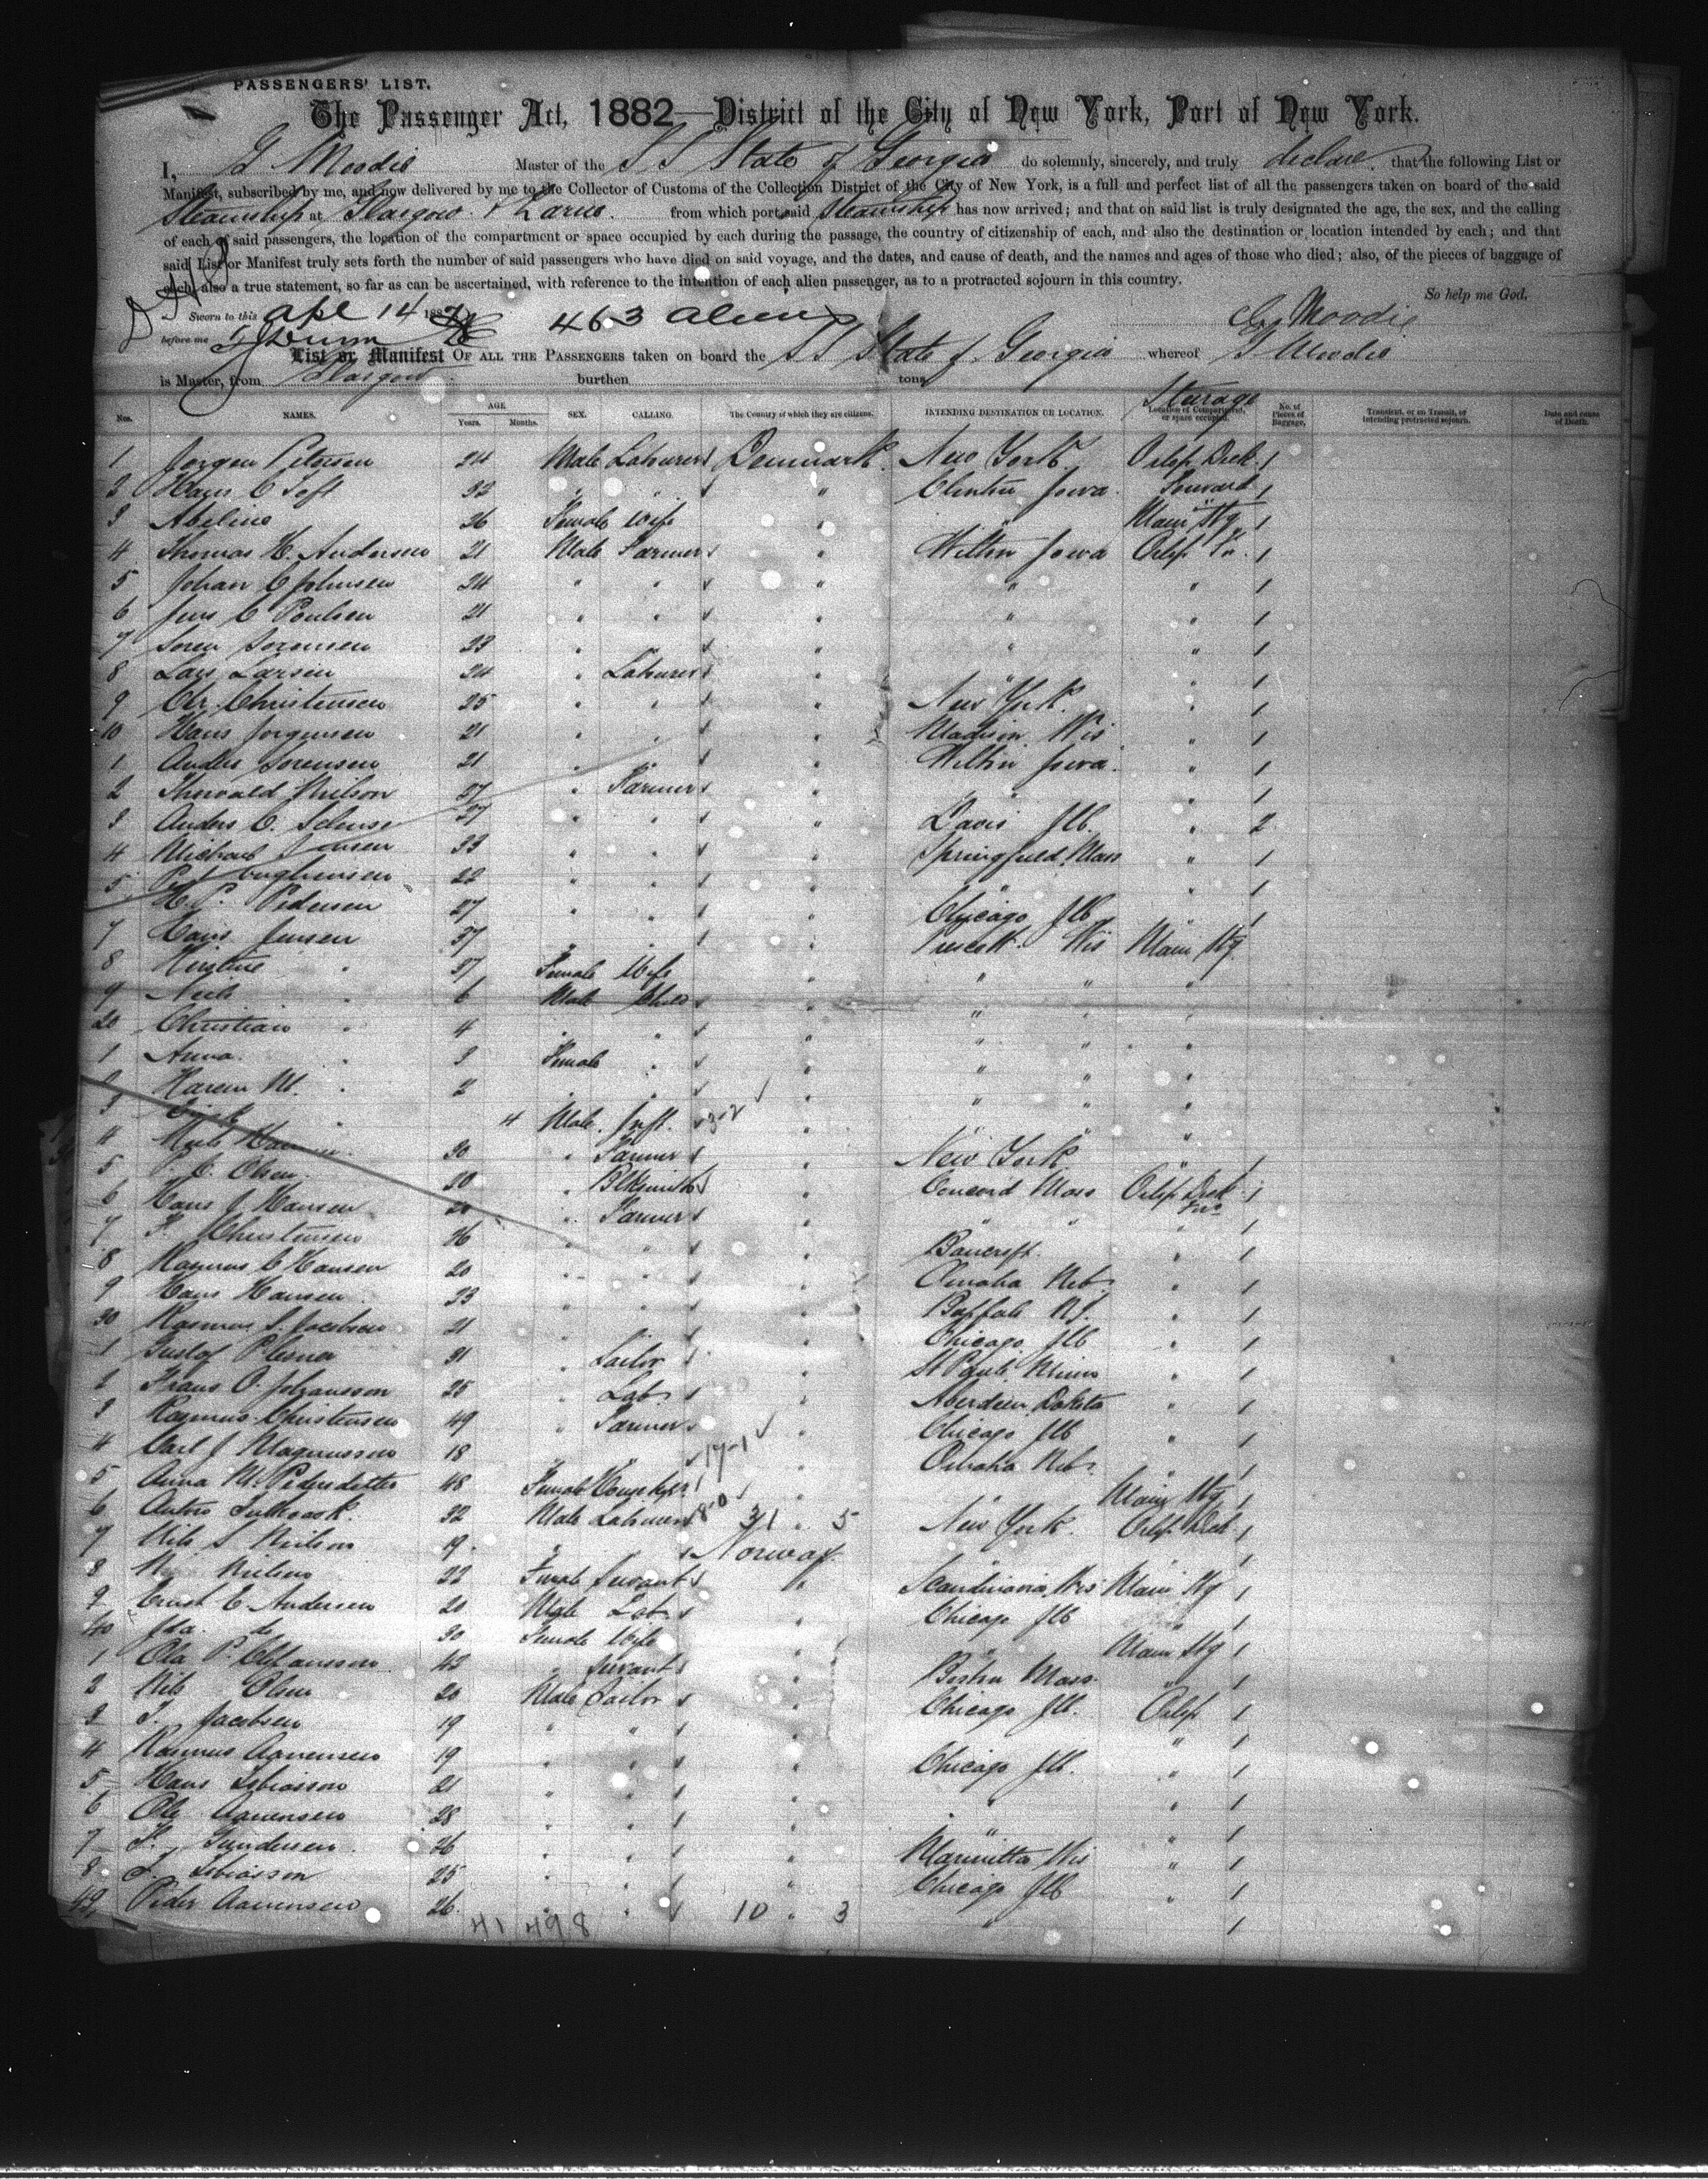 PASSENGERS' LIST.
The Passenger Act, 1882—District of the City of New York, Port of New York.
I, G Moodie Master of the S S State of Georgia do solemnly, sincerely, and truly declare that the following List or
Manifest, subscribed by me, and now delivered by me to the Collector of Customs of the Collection District of the City of New York, is a full and perfect list of all the passengers taken on board of the said
Steamship at Glasgow & Larne. from which port said Steamship has now arrived; and that on said list is truly designated the age, the sex, and the calling
of each of said passengers, the location of the compartment or space occupied by each during the passage, the country of citizenship of each, and also the destination or location intended by each; and that
said List or Manifest truly sets forth the number of said passengers who have died on said voyage, and the dates, and cause of death, and the names and ages of those who died; also, of the pieces of baggage of
each; also a true statement, so far as can be ascertained, with reference to the intention of each alien passenger, as to a protracted sojourn in this country.
So help me God.
Sworn to this Apl 14 188 463 Aliens G Moodie
before me
List or Manifest OF ALL THE PASSENGERS taken on board the S S State of Georgia whereof G Moodie
is Master, from Glasgow burthen tons
Steerage
Nos. NAMES. AGE Years. Months. SEX. CALLING. The Country of which they are citizens. INTENDING DESTINATION OR LOCATION. Location of Compartment, or space occupied. No. of Pieces of Baggage. Transient, or in Transit, or intending protracted sojourn. Date and cause of Death.
1 Jorgen Petersen 24 Male Labourer Denmark New York Orlop Deck 1
2 Hans C Toft 32 " " " Clinton Iowa Forward 1
3 Abeline 26 Female Wife " " Main 1
4 Thomas H. Andersen 21 Male Farmer " Wilton Iowa Orlop 1
5 Johan C Johnsen 24 " " " " " 1
6 Jens C Poulsen 21 " " " " " 1
7 Soren Sorensen 23 " " " " " 1
8 Lars Larsen 24 " Labourer " " " 1
9 Chr. Christensen 25 " " " New York " 1
10 Hans Jorgensen 21 " " " Madison Wis " 1
1 Anders Sorensen 21 " " " Wilton Iowa " 1
2 Thorvald Nielson 27 " Farmer " " " 1
3 Anders C. 27 " " " Davis Ill. " 2
4 Michael Jensen 33 " " " Springfield Mass " 1
5 22 " " " " " 1
H. P. Pedersen 27 " " " Chicago Ill " 1
7 Hans Jensen 37 " " " Prescott Wis Main
8 Kirstine " 37 Female Wife " " "
9 Niels 6 Male Child " " "
20 Christian " 4 " " " " "
1 Anna " 3 Female " " " "
2 Karen M. " 2 " " " " "
3 " 4 Male Inft. " " "
4 Niels Hansen 30 " Farmer " New York " 1
5 C. Olsen 20 " Blksmith " Concord Mass Orlop Deck 1
6 Hans J Hansen " Farmer " " " 1
7 Christensen 26 " " " Bancroft " 1
8 Rasmus C Hansen 20 " " " Omaha Neb " 1
9 Hans Hansen 23 " " " Buffalo N.Y. " 1
30 Rasmus S. Jacobsen 21 " " " Chicago Ill " 1
1 Gustof Plesner 31 " Sailor " St Paul Minn " 1
2 Frans O. Johansson 25 " Lab. " Aberdeen Dakota " 1
3 Rasmus Christensen 49 " Farmer " Chicago Ill " 1
4 Carl J Magnusson 18 " " " Omaha Neb " 1
5 Anna M. Pedersdatter 48 Female " " Main 1
6 Anton 32 Male Labourer 31 " 5 New York Orlop Deck 1
7 Nils S Neilson 19 " " Norway " " 1
8 Nielsen 22 Female Servant " Scandinavia Wis Main 1
9 Ernst E Andersen 21 Male Lab. " Chicago Ill " 1
40 Ida do 30 Female Wife " " Main 1
1 Ola P. 42 " Servant " Boston Mass " 1
2 Nils Olsen 20 Male Sailor " Chicago Ill. Orlop 1
3 Jacobsen 19 " " " " " 1
4 Rasmus Aanensen 19 " " " Chicago Ill. " 1
5 Hans Tobiasson 21 " " " " " 1
6 Ole Aanensen 28 " " " " " 1
7 Gundersen 26 " " " Marinette Wis " 1
8 Tobiasson 25 " " " Chicago Ill " 1
49 Peder Aanensen 26 " " 10 " 3 " " 1
41 49 8